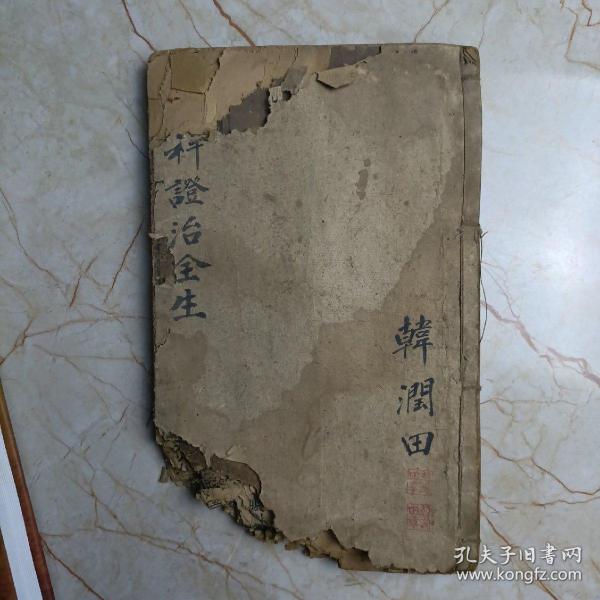 韓潤田
祥證治全生
孔夫子旧书网
www.kongfz.com